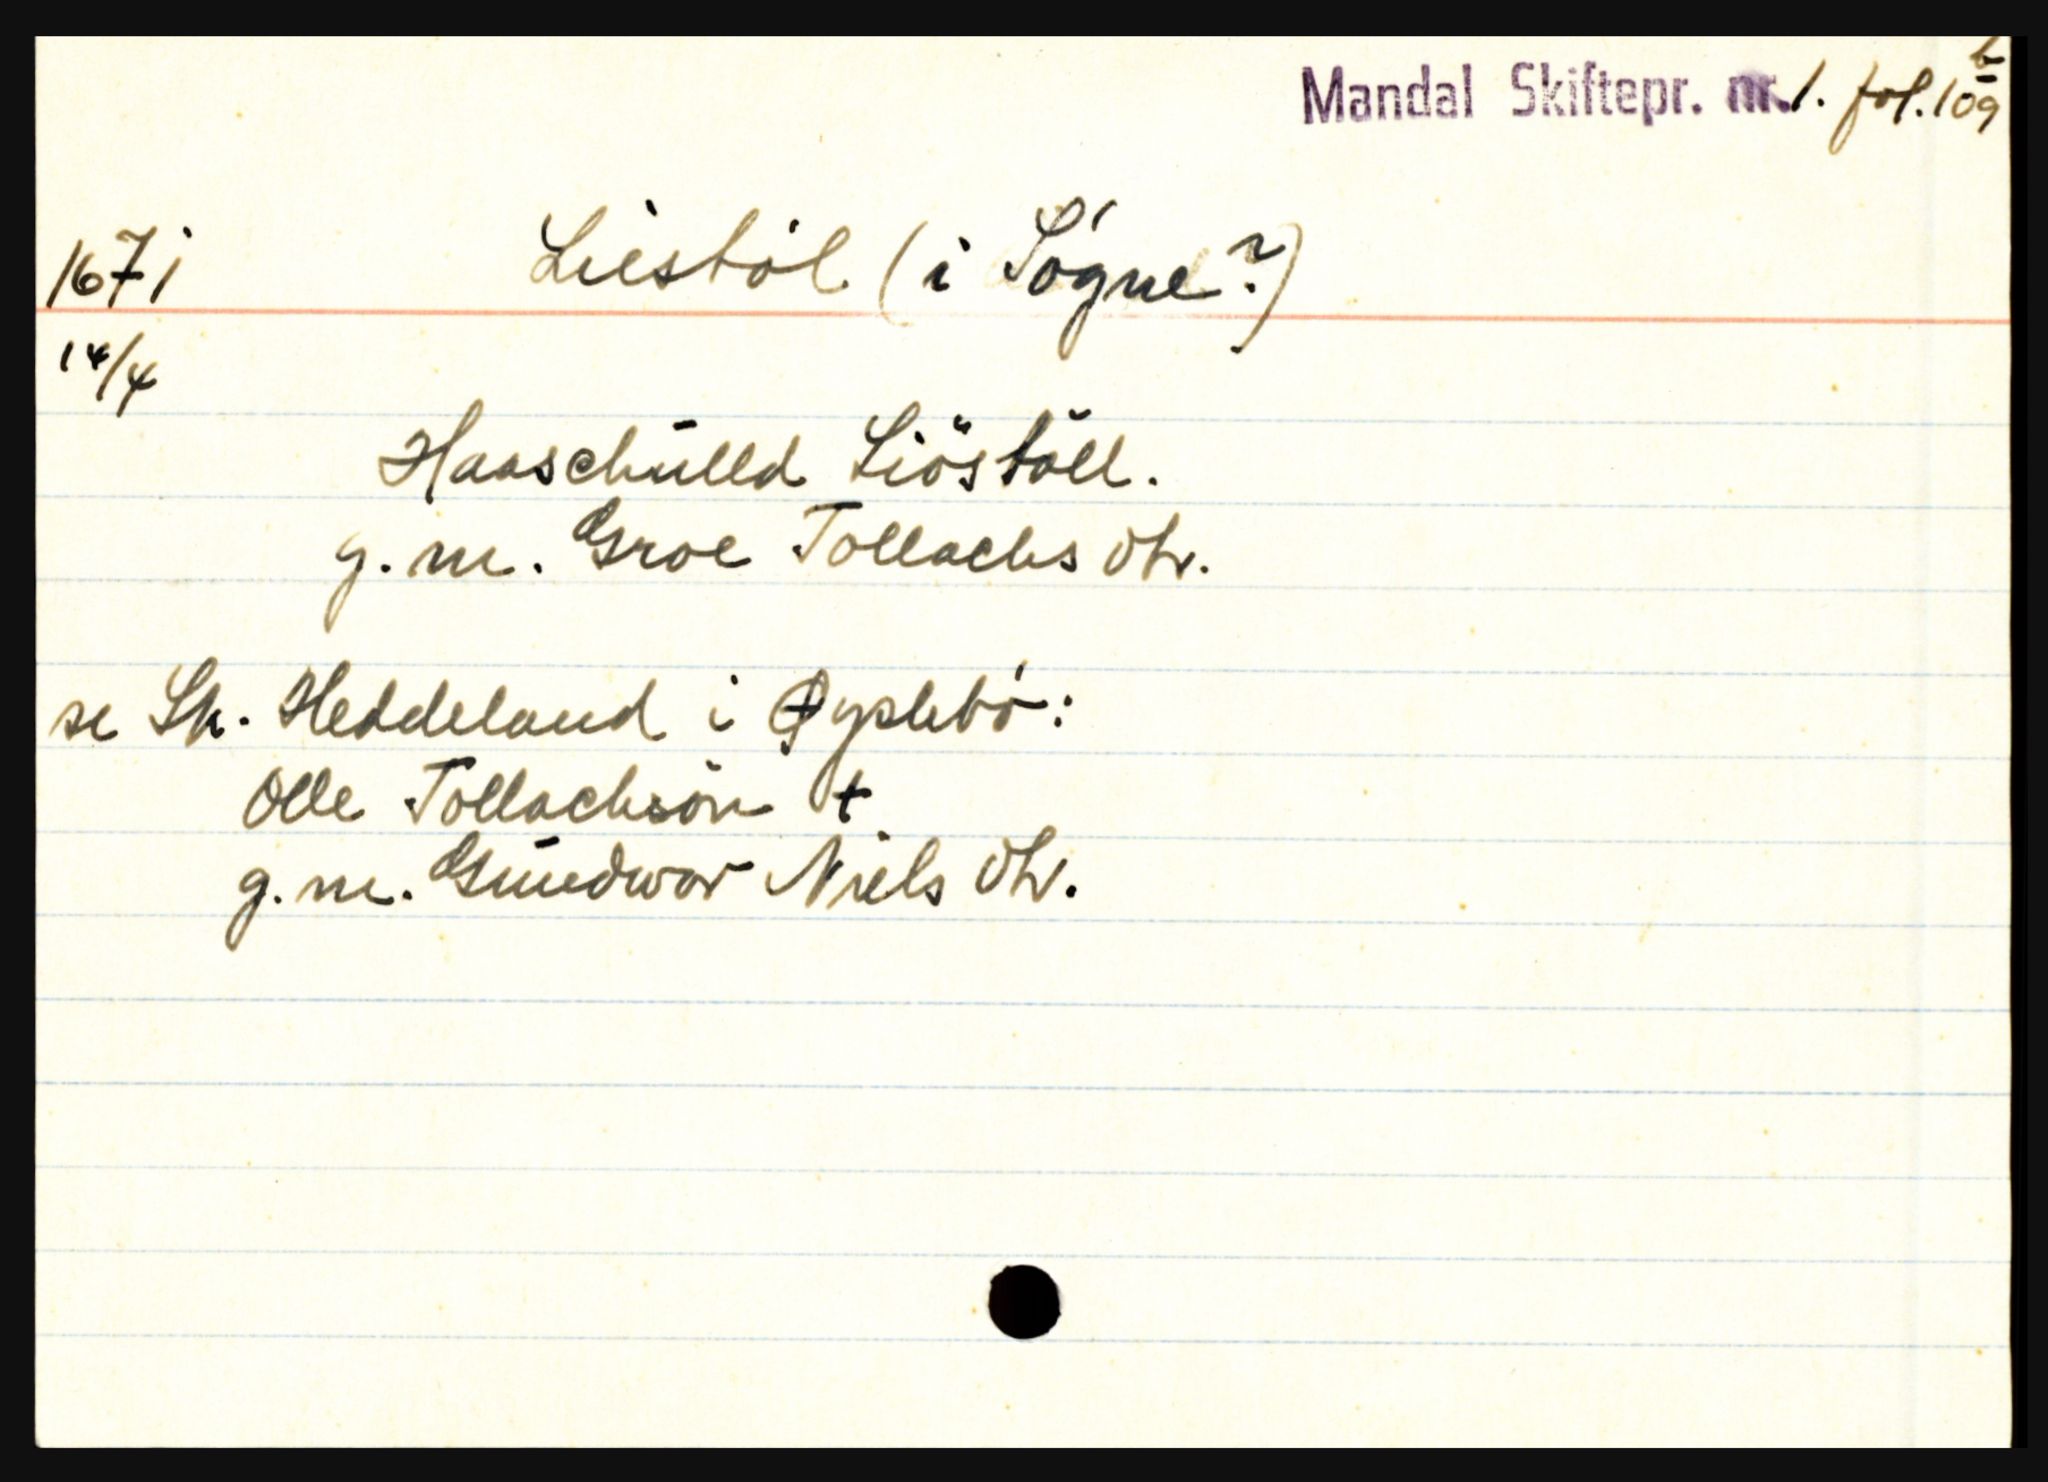 Mandal Skiftepr. nr. 1. fol. 109 b
1671 Liestøl (i Søgne?)
14/4
Haaschŭlld Liöstöll.
g. m. Groe Tollachs dtr.
se Sk. Heddeland i Øyslebø:
Olle Tollachsøn +
g. m. Gŭndwor Niels dtr.